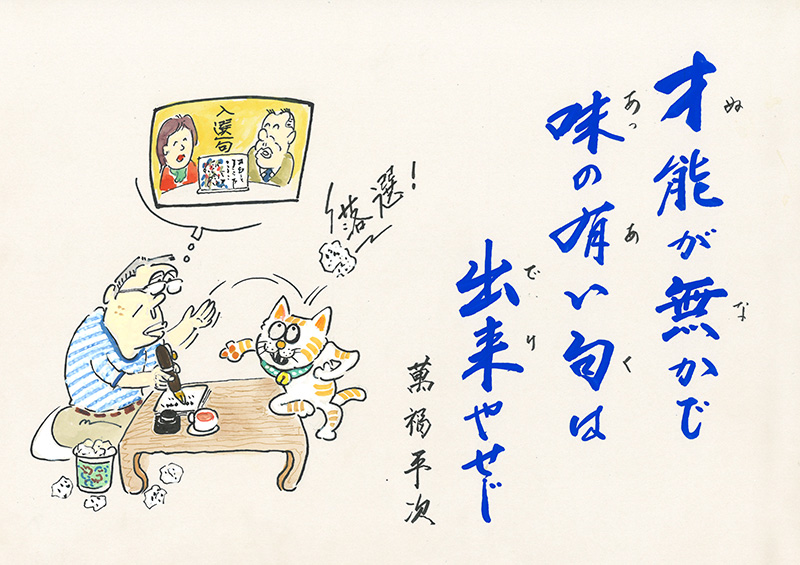 才能が無かで
ぬ な
味の有い句は
あっ あ く
出来やせじ
で り
菓福平次
落選!
入選句